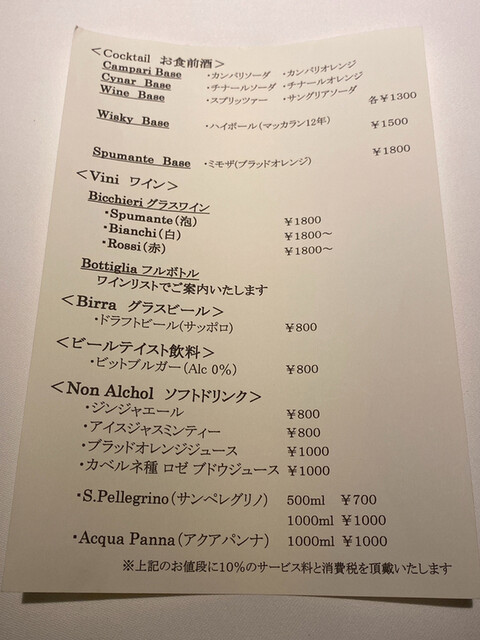 ＜Cocktail お食前酒＞
Campari Base ・カンパリソーダ ・カンパリオレンジ
Cynar Base ・チナールソーダ ・チナールオレンジ
Wine Base ・スプリッツァー ・サングリアソーダ 各￥1300
Wisky Base ・ハイボール(マッカラン12年) ￥1500
Spumante Base ・ミモザ(ブラッドオレンジ) ￥1800
＜Vini ワイン＞
Bicchieri グラスワイン
・Spumante(泡) ￥1800
・Bianchi(白) ￥1800～
・Rossi(赤) ￥1800～
Bottiglia フルボトル
ワインリストでご案内いたします
＜Birra グラスビール＞
・ドラフトビール(サッポロ) ￥800
＜ビールテイスト飲料＞
・ビットブルガー(Alc 0%) ￥800
＜Non Alchol ソフトドリンク＞
・ジンジャエール ￥800
・アイスジャスミンティー ￥800
・ブラッドオレンジジュース ￥1000
・カベルネ種 ロゼ ブドウジュース ￥1000
・S.Pellegrino(サンペレグリノ) 500ml ￥700
1000ml ￥1000
・Acqua Panna(アクアパンナ) 1000ml ￥1000
※上記のお値段に10%のサービス料と消費税を頂戴いたします